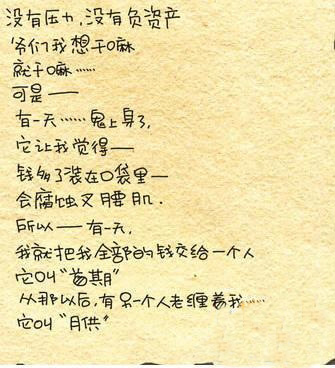 没有压力,没有负资产
爷们我想干嘛
就干嘛……
可是——
有一天……鬼上身了,
它让我觉得——
钱多了装在口袋里—
会腐蚀叉腰肌.
所以——有一天,
我就把我全部的钱交给一个人
它叫“首期”
从那以后,有另一个人老缠着我……
它叫“月供”